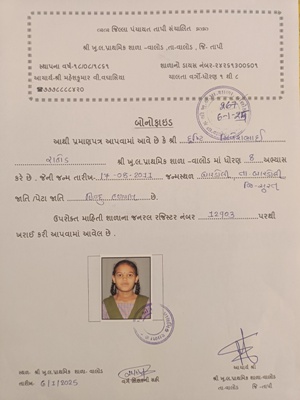 જિલ્લા પંચાયત તાપી સંચાલિત
શ્રી ખુ.લ.પ્રાથમિક શાળા -વાલોડ .તા-વાલોડ , જિ- તાપી
સ્થાપના વર્ષ-૧૮/૦૮/૧૮૬૧ શાળાનો ડાયસ નંબર-૨૪૨૬૧૩૦૦૬૦૧
આચાર્ય-શ્રી મહેશકુમાર વી.વપારિયા ચાલતા વર્ગ-ધોરણ ૧ થી ૮
267
6-1-25
બોનોફાઇડ
આથી પ્રમાણપત્ર આપવામાં આવે છે કે શ્રી
રાઠોડ શ્રી ખુ.લ.પ્રાથમિક શાળા -વાલોડ માં ધોરણ 8 અભ્યાસ
કરે છે . જેની જન્મ તારીખ- 17-05-2011 જન્મસ્થળ બારડોલી તા.બારડોલી
જિ-સુરત
જાતિ /પેટા જાતિ હિન્દુ હળપતિ છે.
ઉપરોક્ત માહિતી શાળાના જનરલ રજિસ્ટર નંબર 12903 પરથી
ખરાઈ કરી આપવામાં આવેલ છે .
સ્થળ: શ્રી ખુ.લ.પ્રાથમિક શાળા - વાલોડ
તારીખ: 6/1/2025
વર્ગ શિક્ષકની સહી
આચાર્ય શ્રી
શ્રી ખુ.લ.પ્રાથમિક શાળા -વાલોડ
તા-વાલોડ જિ -તાપી